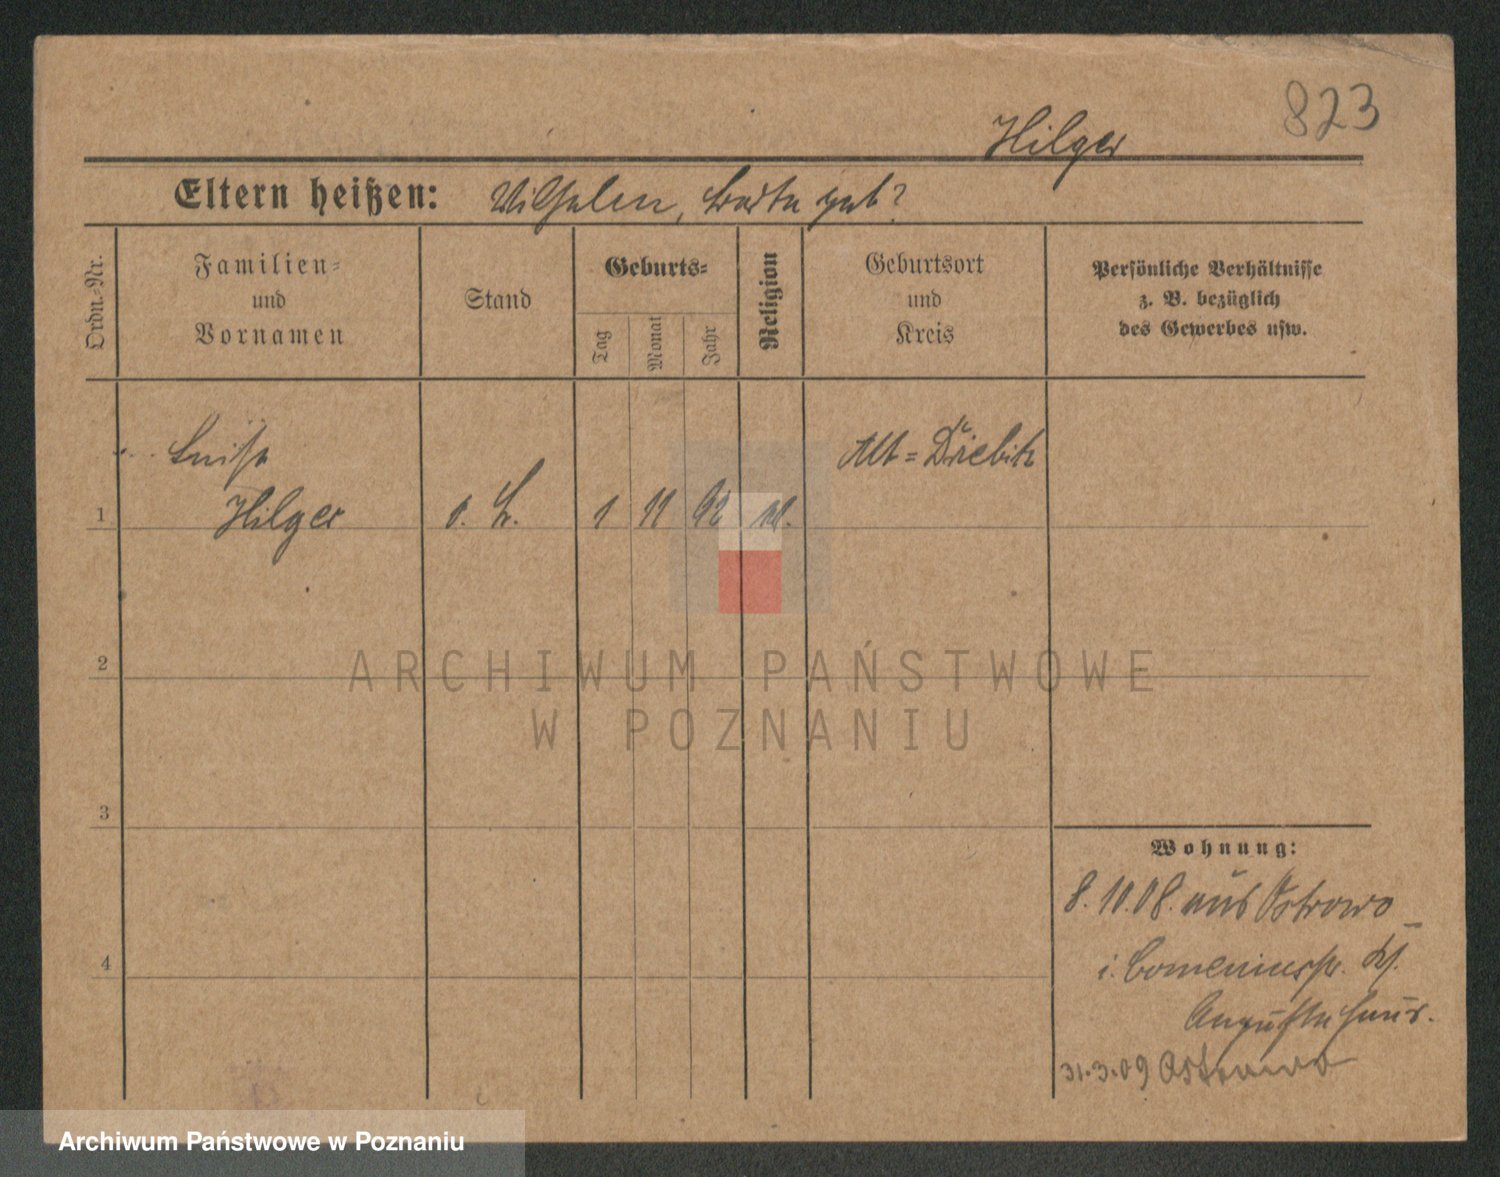 823
Hilger
Eltern heißen: Wilhelm, geb?
Ordn.-Nr.
Familien- und Vornamen
Stand
Geburts-
Tag
Monat
Jahr
Religion
Geburtsort und Kreis
Persönliche Verhältnisse z. B. bezüglich des Gewerbes usw.
Luise
Alt=Driebitz
1 Hilger o. 1 11 92
2
3
4
Wohnung:
8.10.08. aus Ostrowo
i. Comeniusstr.
Augusta Haus.
31.3.09 Ostrowo
ARCHIWUM PAŃSTWOWE
W POZNANIU
Archiwum Państwowe w Poznaniu